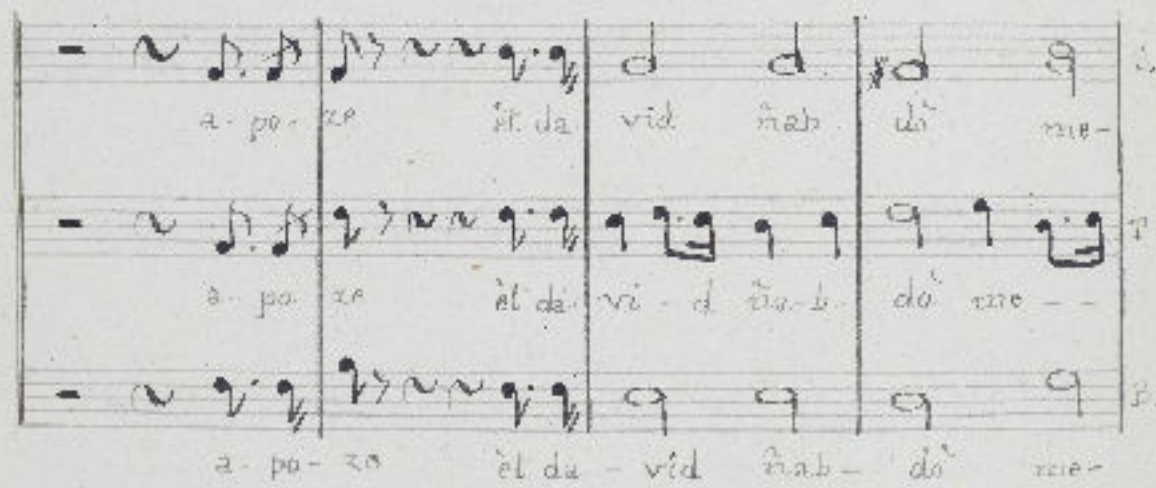 a- po- ze èt da- vid ñab dö me-
a- po ze èt da- vi - d ña-b- dö me - -
a- po- ze èt da - vid ñab- dö me-